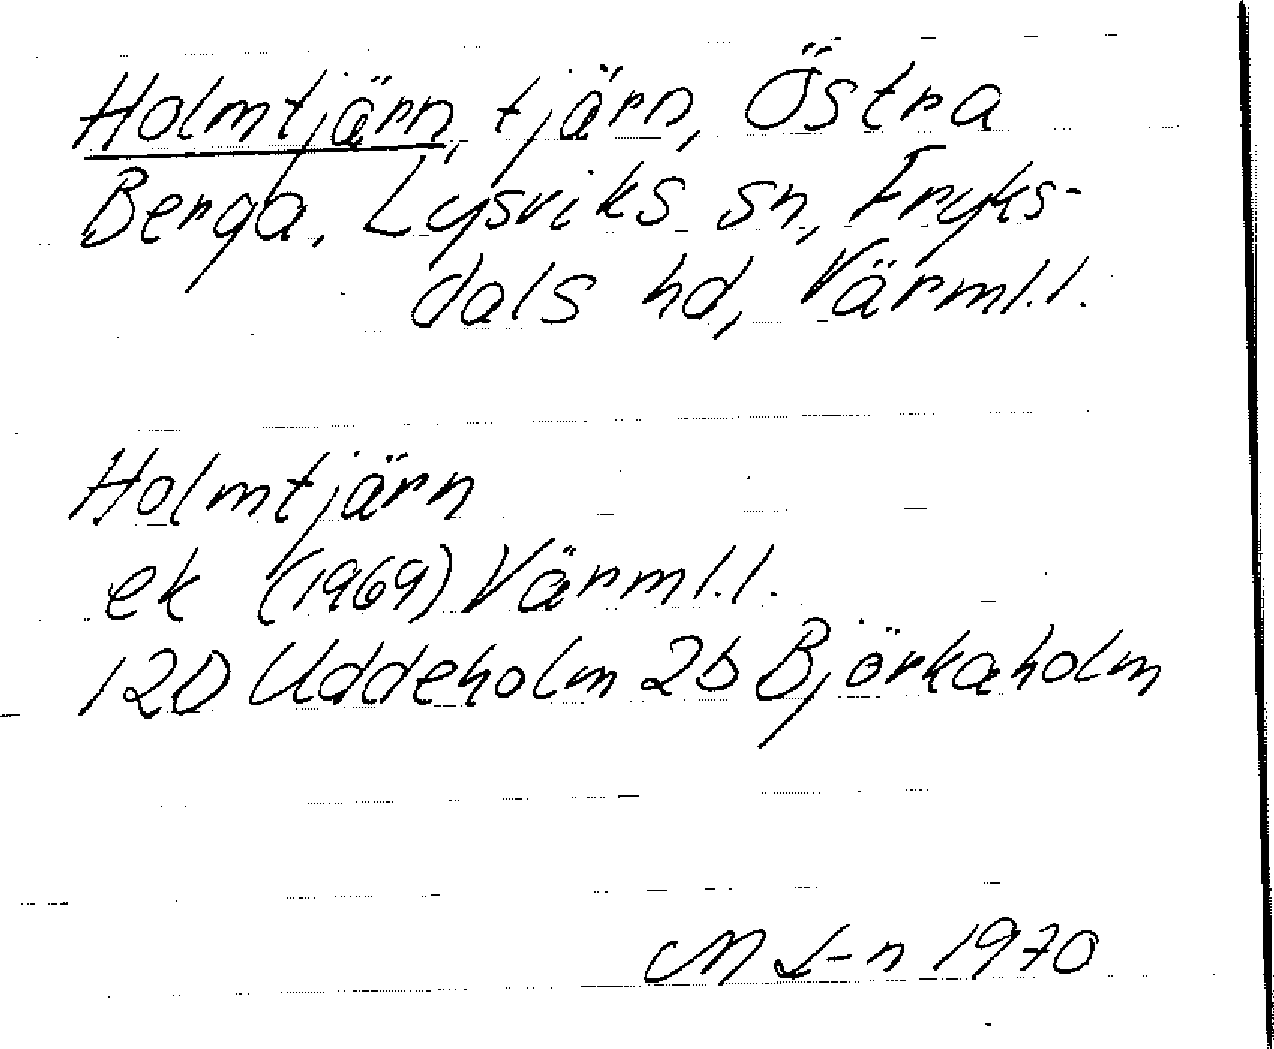 Holmtjärn, tjärn, Östra
Berga, Lysviks sn, Fryks-
dals hd, Värml.l.
Holmtjärn
ek (1969) Värml.l.
12D Uddeholm 2b Björkaholm
M L-n 1970